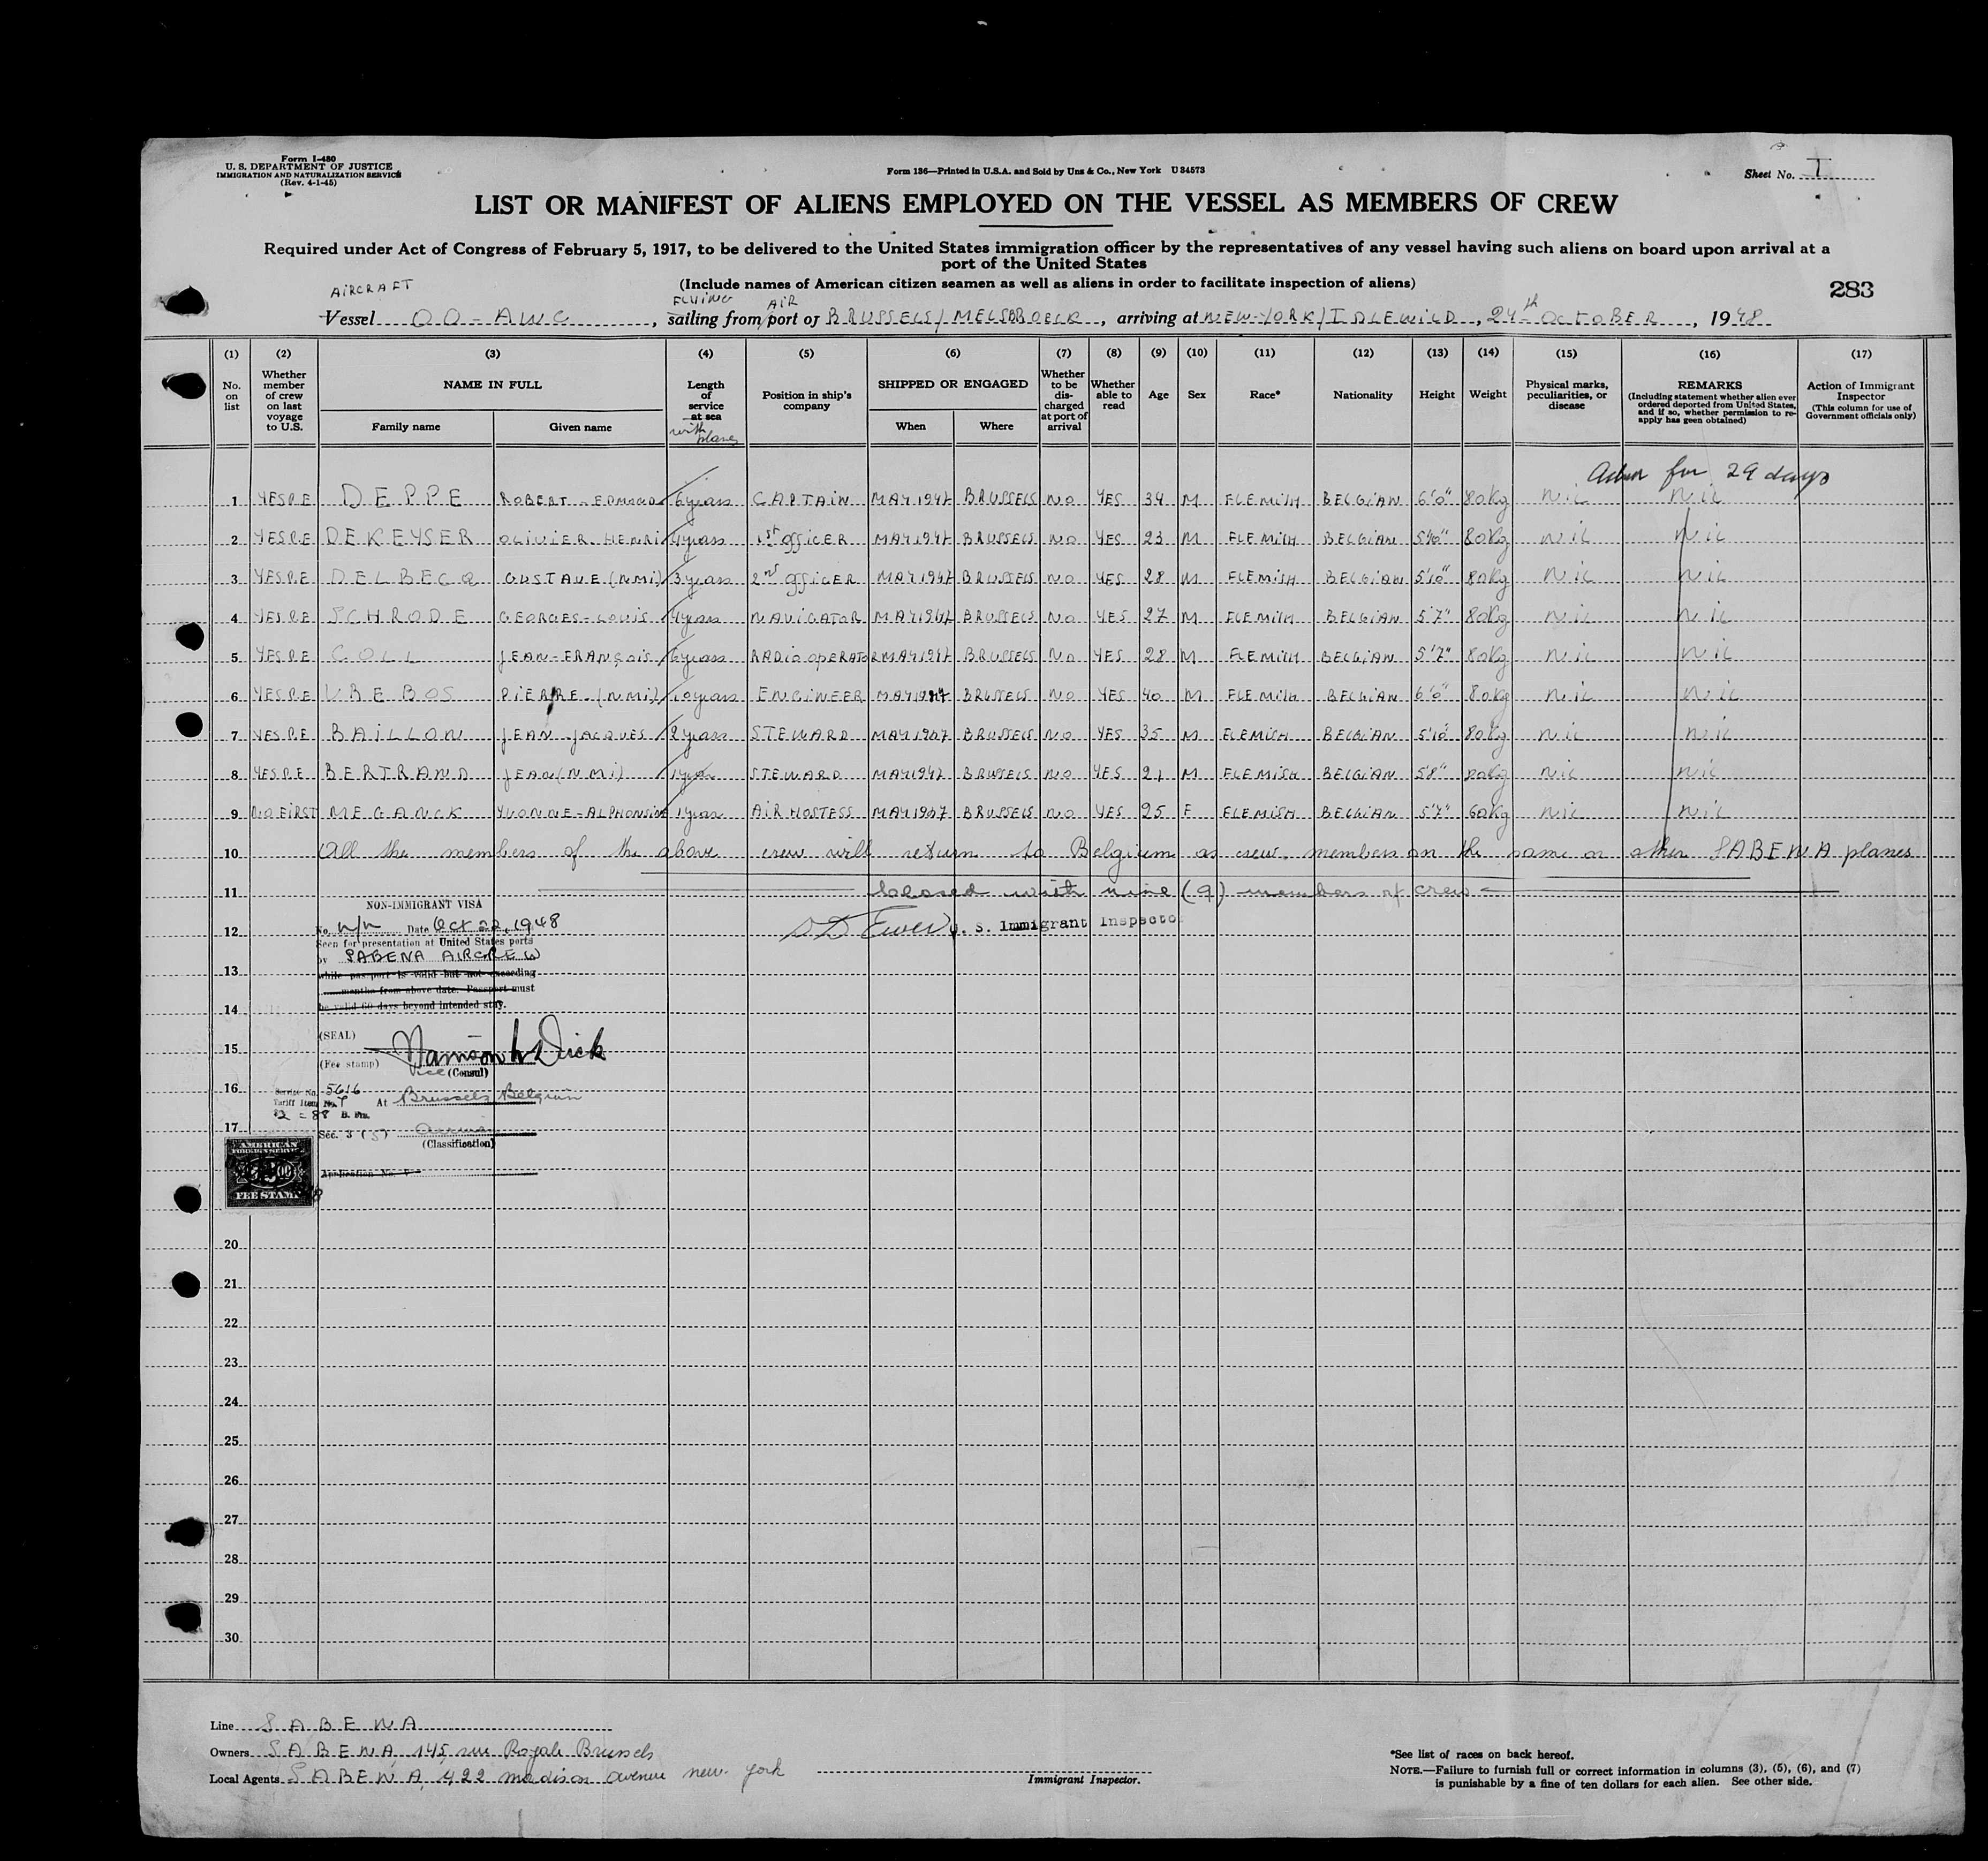 Form I-480
U. S. DEPARTMENT OF JUSTICE
IMMIGRATION AND NATURALIZATION SERVICE
(Rev. 4-1-45)
Form 136—Printed in U.S.A. and Sold by Unz & Co., New York U 34573
Sheet No. I
LIST OR MANIFEST OF ALIENS EMPLOYED ON THE VESSEL AS MEMBERS OF CREW
Required under Act of Congress of February 5, 1917, to be delivered to the United States immigration officer by the representatives of any vessel having such aliens on board upon arrival at a
port of the United States
(Include names of American citizen seamen as well as aliens in order to facilitate inspection of aliens)
283
AIRCRAFT FLYING AIR
Vessel OO-AWC, sailing from port of BRUSSELS/MELSBROECK, arriving at NEW-YORK/IDLEWILD, 24th OCTOBER, 1948
(1) (2) (3) (4) (5) (6) (7) (8) (9) (10) (11) (12) (13) (14) (15) (16) (17)
No. on list
Whether member of crew on last voyage to U.S.
NAME IN FULL
Family name
Given name
Length of service at sea with planes
Position in ship's company
SHIPPED OR ENGAGED
When
Where
Whether to be discharged at port of arrival
Whether able to read
Age
Sex
Race*
Nationality
Height
Weight
Physical marks, peculiarities, or disease
REMARKS
(Including statement whether alien ever ordered deported from United States, and if so, whether permission to re-apply has geen obtained)
Action of Immigrant Inspector
(This column for use of Government officials only)
for 29 days
1 YES P.E DEPPE ROBERT - 6 years CAPTAIN MAY 1947 BRUSSELS NO YES 34 M FLEMISH BELGIAN 6'0" 80Kg nil nil
2 YES P.E DEKEYSER OLIVIER-HENRI 4 years 1st OFFICER MAY 1947 BRUSSELS NO YES 23 M FLEMISH BELGIAN 5'10" 80Kg nil nil
3 YES P.E DELBECQ GUSTAVE (NMI) 3 years 2nd OFFICER MAY 1947 BRUSSELS NO YES 28 M FLEMISH BELGIAN 5'10" 80Kg nil nil
4 YES P.E SCHRODE GEORGES-LOUIS 4 years NAVIGATOR MAY 1947 BRUSSELS NO YES 27 M FLEMISH BELGIAN 5'7" 80Kg nil nil
5 YES P.E COLL JEAN-FRANÇOIS 6 years RADIO OPERATOR MAY 1947 BRUSSELS NO YES 28 M FLEMISH BELGIAN 5'7" 80Kg nil nil
6 YES P.E UBEBOS PIERRE-(NMI) 10 years ENGINEER MAY 1947 BRUSSELS NO YES 40 M FLEMISH BELGIAN 6'0" 80Kg nil nil
7 YES P.E BAILLON JEAN JACQUES 2 years STEWARD MAY 1947 BRUSSELS NO YES 35 M FLEMISH BELGIAN 5'10" 80Kg nil nil
8 YES P.E BERTRAND JEAN (NMI) 1 year STEWARD MAY 1947 BRUSSELS NO YES 21 M FLEMISH BELGIAN 5'8" 80Kg nil nil
9 NO FIRST MEGANCK YVONNE-ALPHONSINE 1 year AIR HOSTESS MAY 1947 BRUSSELS NO YES 25 F FLEMISH BELGIAN 5'7" 60Kg nil nil
10 All the members of the above crew will return to Belgium as crew members on the same or other SABENA planes
11 closed with nine (9) members of crew
12 U. S. Immigrant Inspector
NON-IMMIGRANT VISA
No. n/n Date Oct 22, 1948
Seen for presentation at United States ports
by SABENA AIRCREW
while passport is valid but not exceeding
months from above date. Passport must
be valid 60 days beyond intended stay.
13
14
(SEAL)
15
(Fee stamp)
Vice (Consul)
16
Service No. 5616
Tariff Item No. 7 At Brussels Belgium
$2 = 88 B. Frs.
17
Sec. 3 (5)
(Classification)
Application No. V
AMERICAN
FOREIGN SERVICE
FEE STAMP
20
21
22
23
24
25
26
27
28
29
30
Line SABENA
Owners SABENA, 145, rue Royale Brussels
Local Agents SABENA, 422 madison avenue new-york
Immigrant Inspector.
*See list of races on back hereof.
NOTE.—Failure to furnish full or correct information in columns (3), (5), (6), and (7)
is punishable by a fine of ten dollars for each alien. See other side.